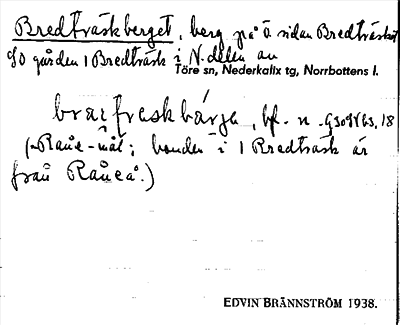 Bredträskberget, berg på ö sidan Bredträsket
SO gården 1 Bredträsk i N. delen av
Töre sn, Nederkalix tg, Norrbottens l.
bf. n
(Råne-mål; bonden i 1 Bredträsk är
från Råneå.)
EDVIN BRÄNNSTRÖM 1938.